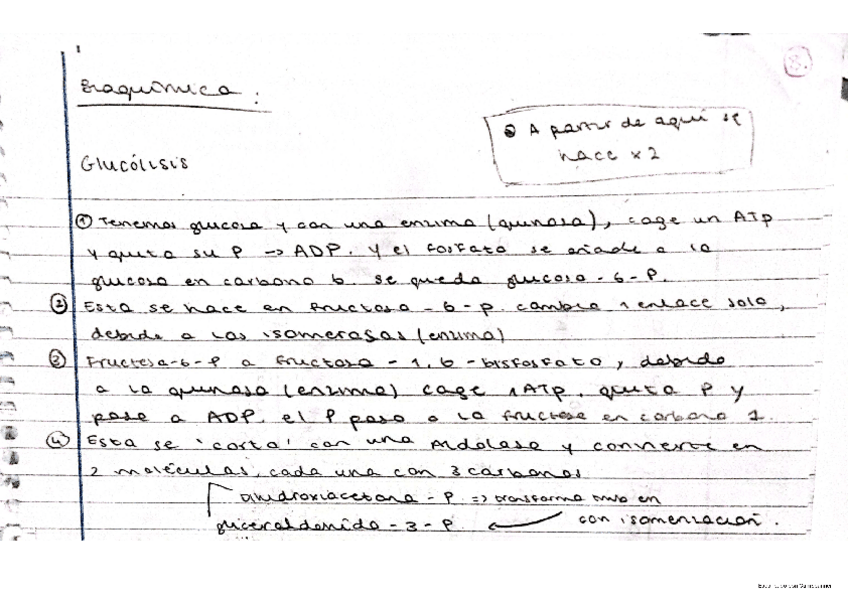 8.
Bioquímica.
A partir de aquí se
hace x2
Glucólisis
① Tenemos glucosa y con una enzima (quinasa), coge un ATP
y quita su P → ADP. y el fosfato se añade a la
glucosa en carbono 6. se queda glucosa - 6 - P.
② Esta se hace en fructosa - 6 - p. cambia 1 enlace solo,
debido a las isomerasas (enzima)
③ Fructosa-6-P a fructosa - 1,6 - bisfosfato, debido
a la quinasa (enzima) coge 1 ATP. quita P y
pasa a ADP. el P pasa a la fructosa en carbono 1.
④ Esta se 'corta' con una Aldolasa y convierte en
2 moléculas, cada una con 3 carbonos
dihidroxiacetona - P. => transforma en
gliceraldehido - 3 - P. con isomerización.